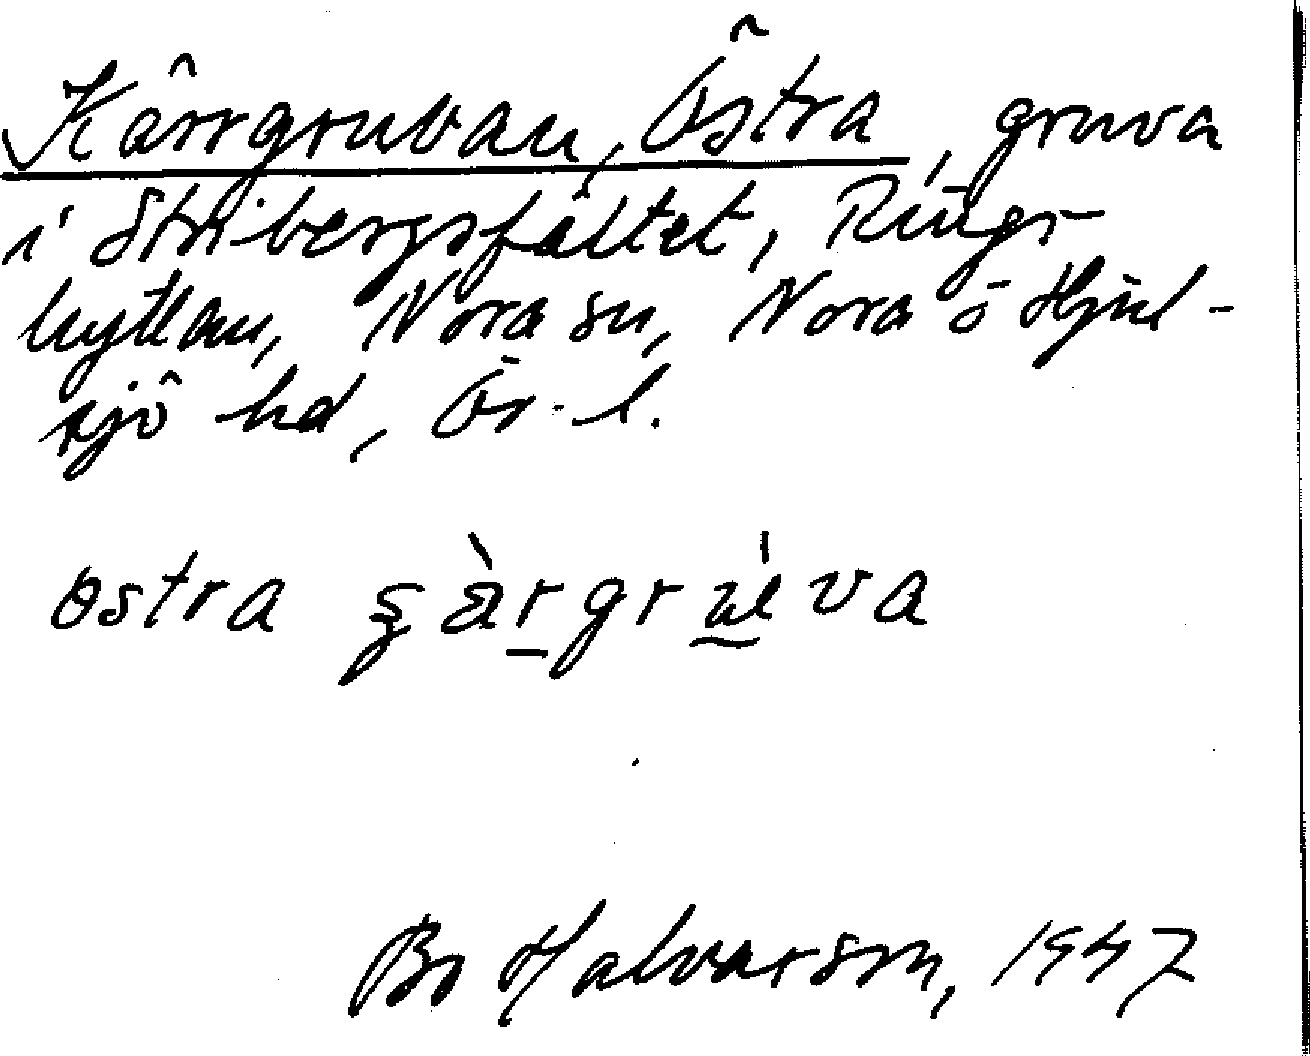 Kärrgruvan, Östra, gruva
i Stribergsfältet, Rings-
hyttan, Nora sn, Nora o Hjul-
sjö hd, Ör. l.
Bo Halvarson, 1947